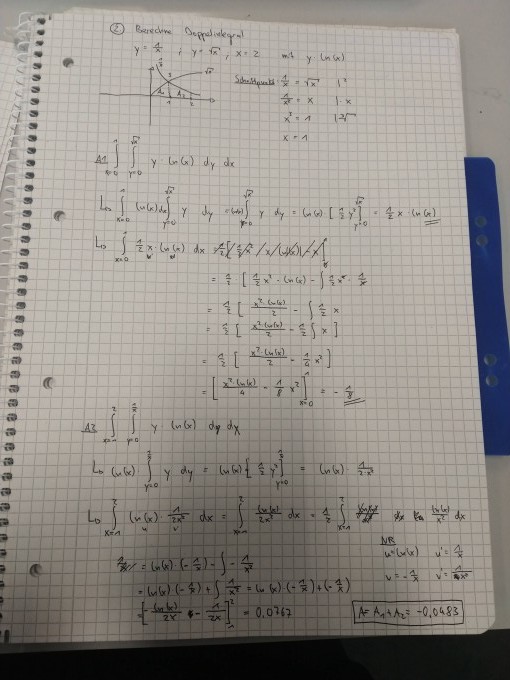 ② Berechne Doppelintegral
y = 1/x ; y = √x ; x = 2 mit y·ln(x)
1/x √x
A₁ A₂
1 2
Schnittpunkt: 1/x = √x |²
1/x² = x |·x
x³ = 1 |∛
x = 1
A1 ∫_{x=0}^{1} ∫_{y=0}^{√x} y · ln(x) dy dx
↳ ∫_{x=0}^{1} ln(x) dx ∫_{y=0}^{√x} y dy = ln(x) ∫_{y=0}^{√x} y dy = ln(x) · [1/2 y²]_{y=0}^{√x} = 1/2 x · ln(x)
↳ ∫_{x=0}^{1} 1/2 x · ln(x) dx
= 1/2 [ 1/2 x² · ln(x) - ∫ 1/2 x² · 1/x
= 1/2 [ x²·ln(x)/2 - ∫ 1/2 x
= 1/2 [ x²·ln(x)/2 - 1/2 ∫ x ]
= [ x²·ln(x)/4 - 1/8 x² ]_{x=0}^{1} = - 1/8
A2 ∫_{x=1}^{2} ∫_{y=0}^{1/x} y · ln(x) dy dx
↳ ln(x) · ∫_{y=0}^{1/x} y dy = ln(x) [1/2 y²]_{y=0}^{1/x} = ln(x) · 1/2·x²
↳ ∫_{x=1}^{2} ln(x) · 1/2x² dx = ∫_{x=1}^{2} ln(x)/2x² dx = 1/2 ∫_{x=1}^{2} ln(x)/x² dx
NR
u = ln(x) u' = 1/x
v = -1/x v' = 1/x²
= ln(x) · (-1/x) - ∫ - 1/x²
= ln(x) · (-1/x) + ∫ 1/x² = ln(x) · (-1/x) + (-1/x)
= [ -ln(x)/2x - 1/2x ]_{1}^{2} = 0,0767
A = A₁ + A₂ = -0,0483